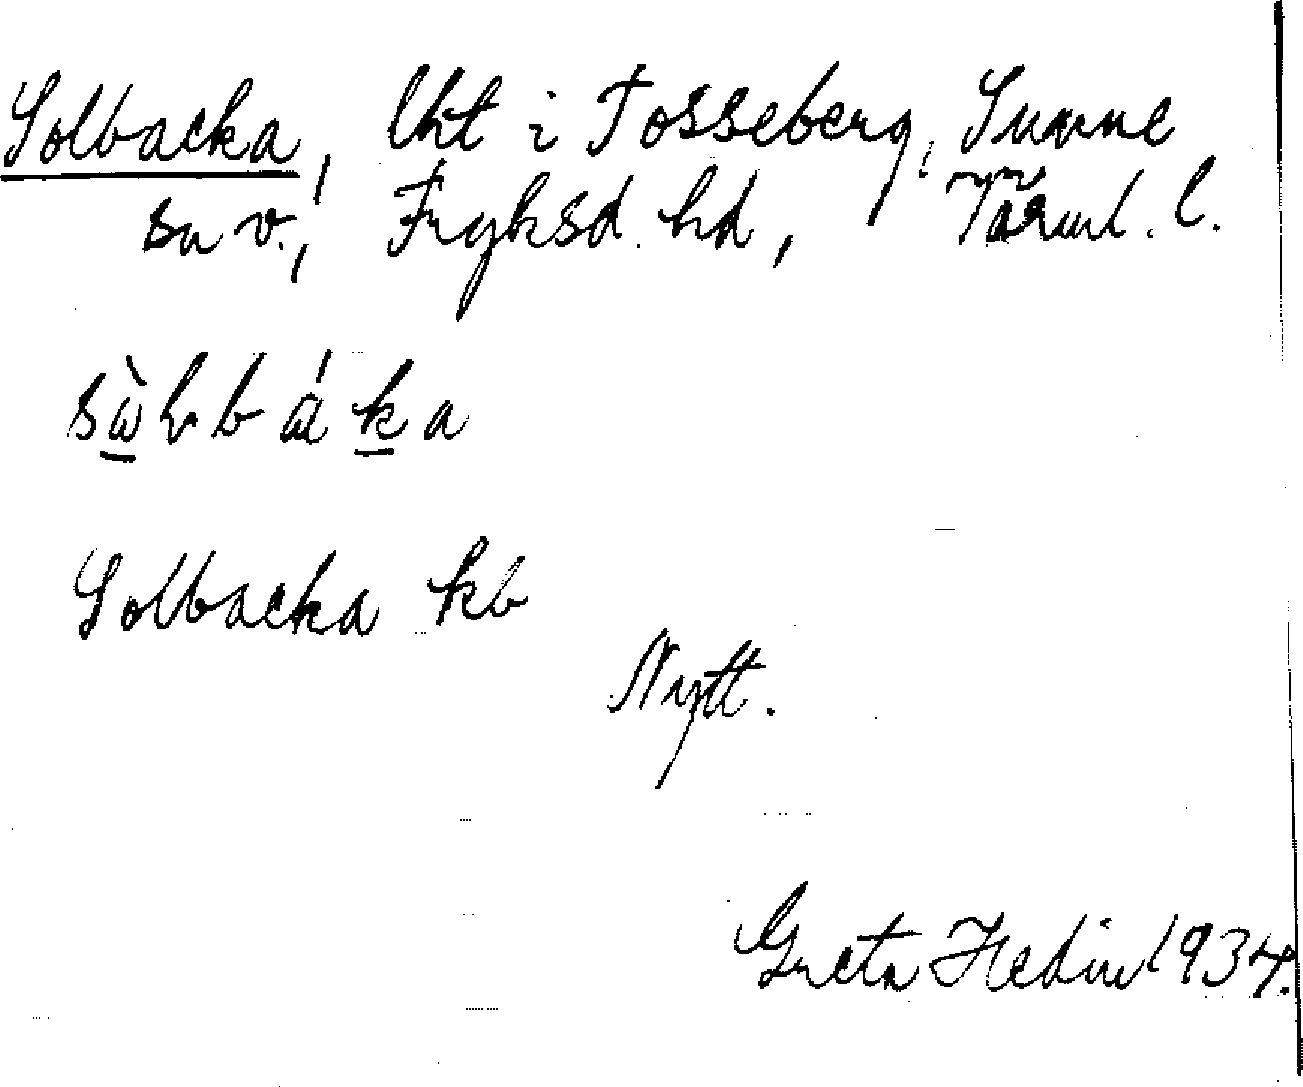 Solbacka, lht i Tosseberg, Sunne
sn v., Fryksd. hd, Värml. l.
Solbacka kb
Nytt.
Greta Hedin 1934.